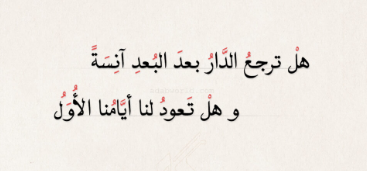 هلْ ترجعُ الدَّارُ بعدَ البُعدِ آنِسَةً
و هلْ تَعودُ لنا أيَّامُنا الأُوَلُ